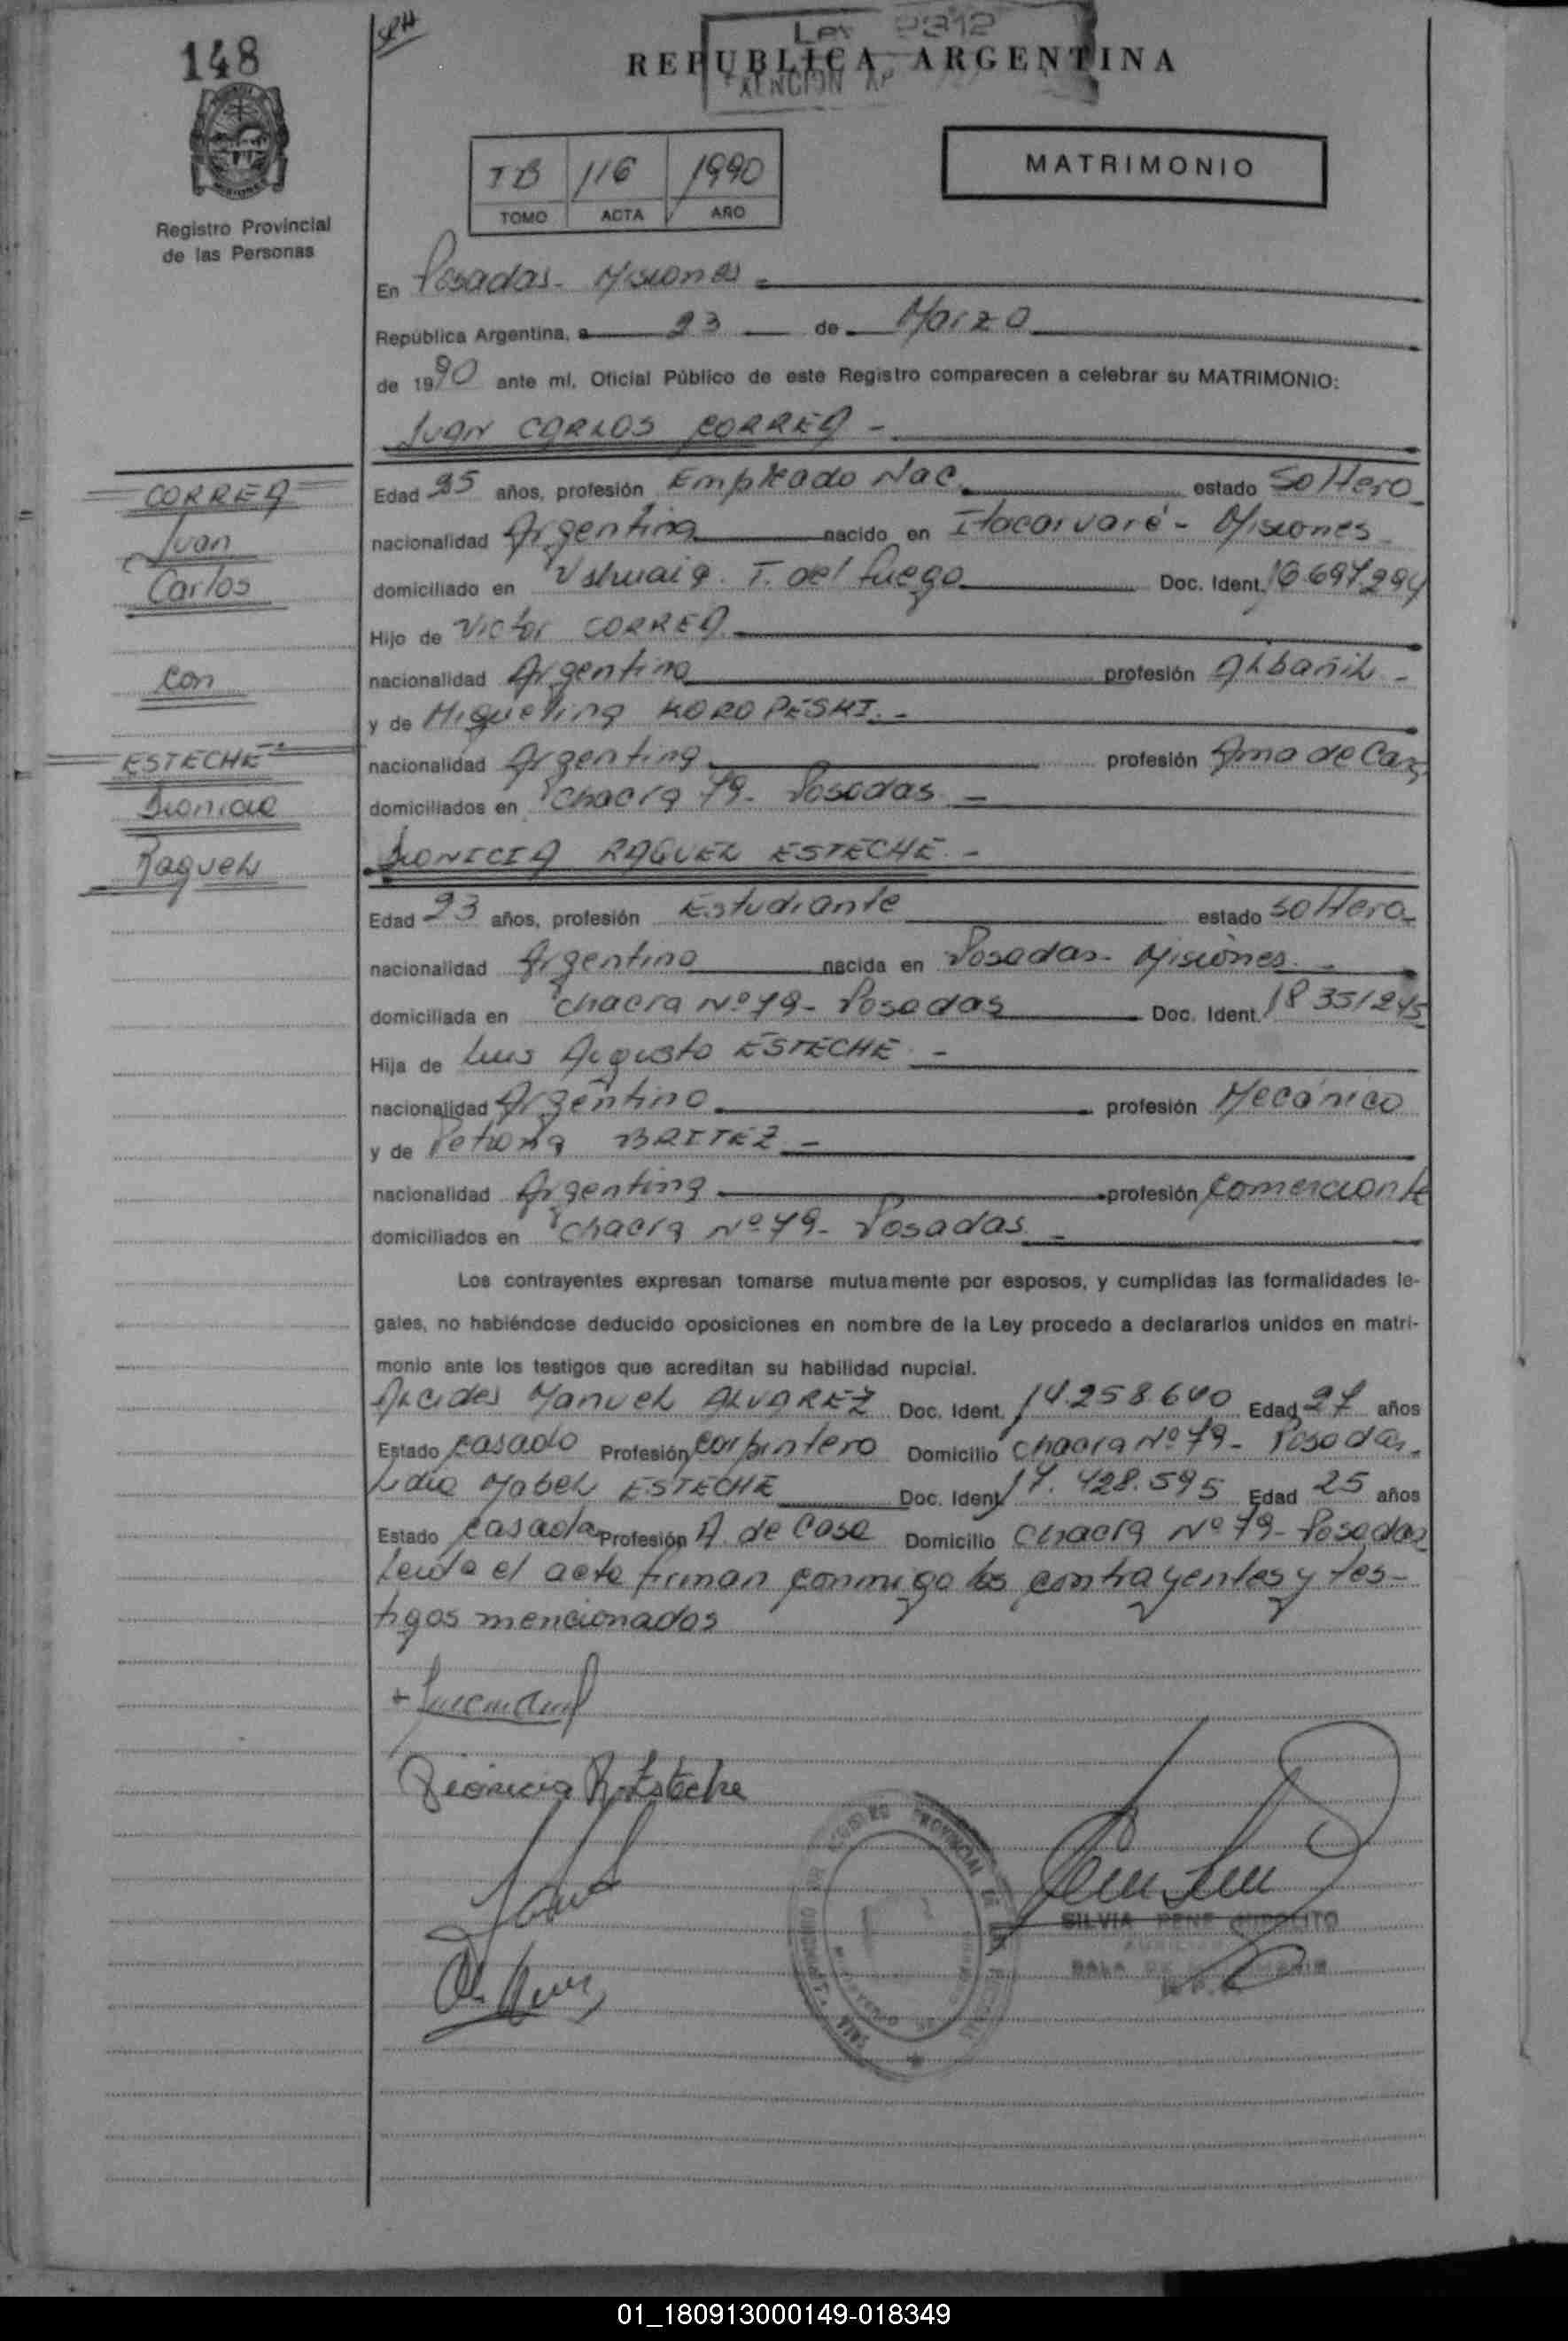 148
Ley 2312
REPUBLICA ARGENTINA
TB 116 1990
TOMO ACTA AÑO
MATRIMONIO
Registro Provincial
de las Personas
En Posadas - Misiones
República Argentina, a 23 de Marzo
de 1990 ante mí, Oficial Público de este Registro comparecen a celebrar su MATRIMONIO:
JUAN CARLOS CORREA -
CORREA
Juan
Carlos
con
ESTECHE
Dionicia
Raquel
Edad 25 años, profesión Empleado Nac. estado Soltero
nacionalidad Argentina nacido en Itacaruaré - Misiones
domiciliado en Ushuaia. T. del fuego Doc. Ident. 16.697.294
Hijo de Victor CORREA
nacionalidad Argentino profesión Albañil -
y de Miguelina KOROPESKI. -
nacionalidad Argentina profesión Ama de Casa
domiciliados en Chacra 79 - Posadas -
DIONICIA RAQUEL ESTECHE -
Edad 23 años, profesión Estudiante estado soltera
nacionalidad Argentina nacida en Posadas - Misiones. -
domiciliada en Chacra Nº 79 - Posadas Doc. Ident. 18351245
Hija de Luis Augusto ESTECHE -
nacionalidad Argentino profesión Mecánico
y de Petrona BRITEZ -
nacionalidad Argentina profesión Comerciante
domiciliados en Chacra Nº 79 - Posadas. -
Los contrayentes expresan tomarse mutuamente por esposos, y cumplidas las formalidades le-
gales, no habiéndose deducido oposiciones en nombre de la Ley procedo a declararlos unidos en matri-
monio ante los testigos que acreditan su habilidad nupcial.
Alcides Manuel ALVAREZ Doc. Ident. 14.258.640 Edad 27 años
Estado casado Profesión carpintero Domicilio Chacra Nº 79 - Posadas.
Lidia Mabel ESTECHE Doc. Ident. 17.428.595 Edad 25 años
Estado Casada Profesión A. de Casa Domicilio Chacra Nº 79 - Posadas
leída el acta firman conmigo los contrayentes y tes-
tigos mencionados
Dionicia R. Esteche
SILVIA HIPOLITO
01_180913000149-018349